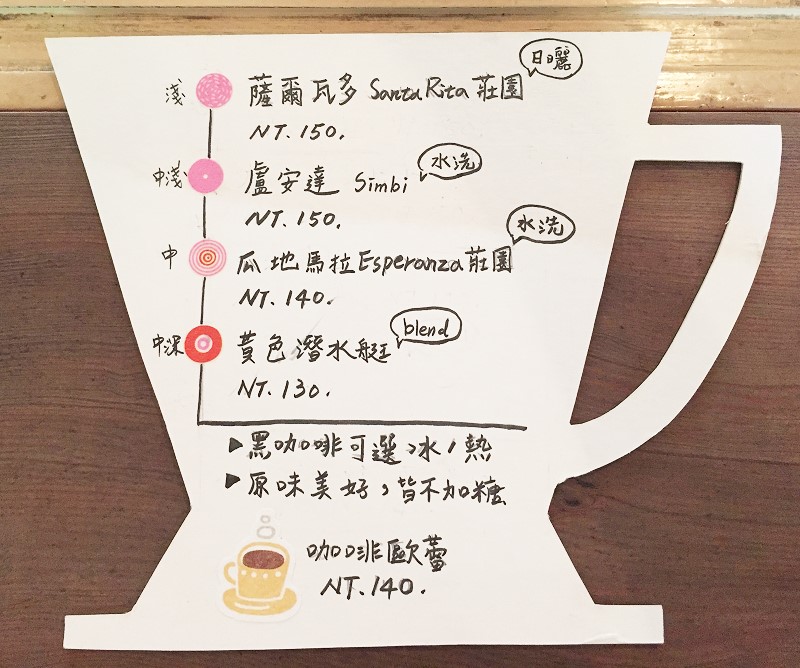 日曬
淺 薩爾瓦多 Santa Rita 莊園
NT. 150.
水洗
中淺 盧安達 Simbi
NT. 150.
水洗
中 瓜地馬拉 Esperanza 莊園
NT. 140.
blend
中深 黃色潛水艇
NT. 130.
▶黑咖啡可選冰/熱
▶原味美好,皆不加糖
咖啡歐蕾
NT. 140.